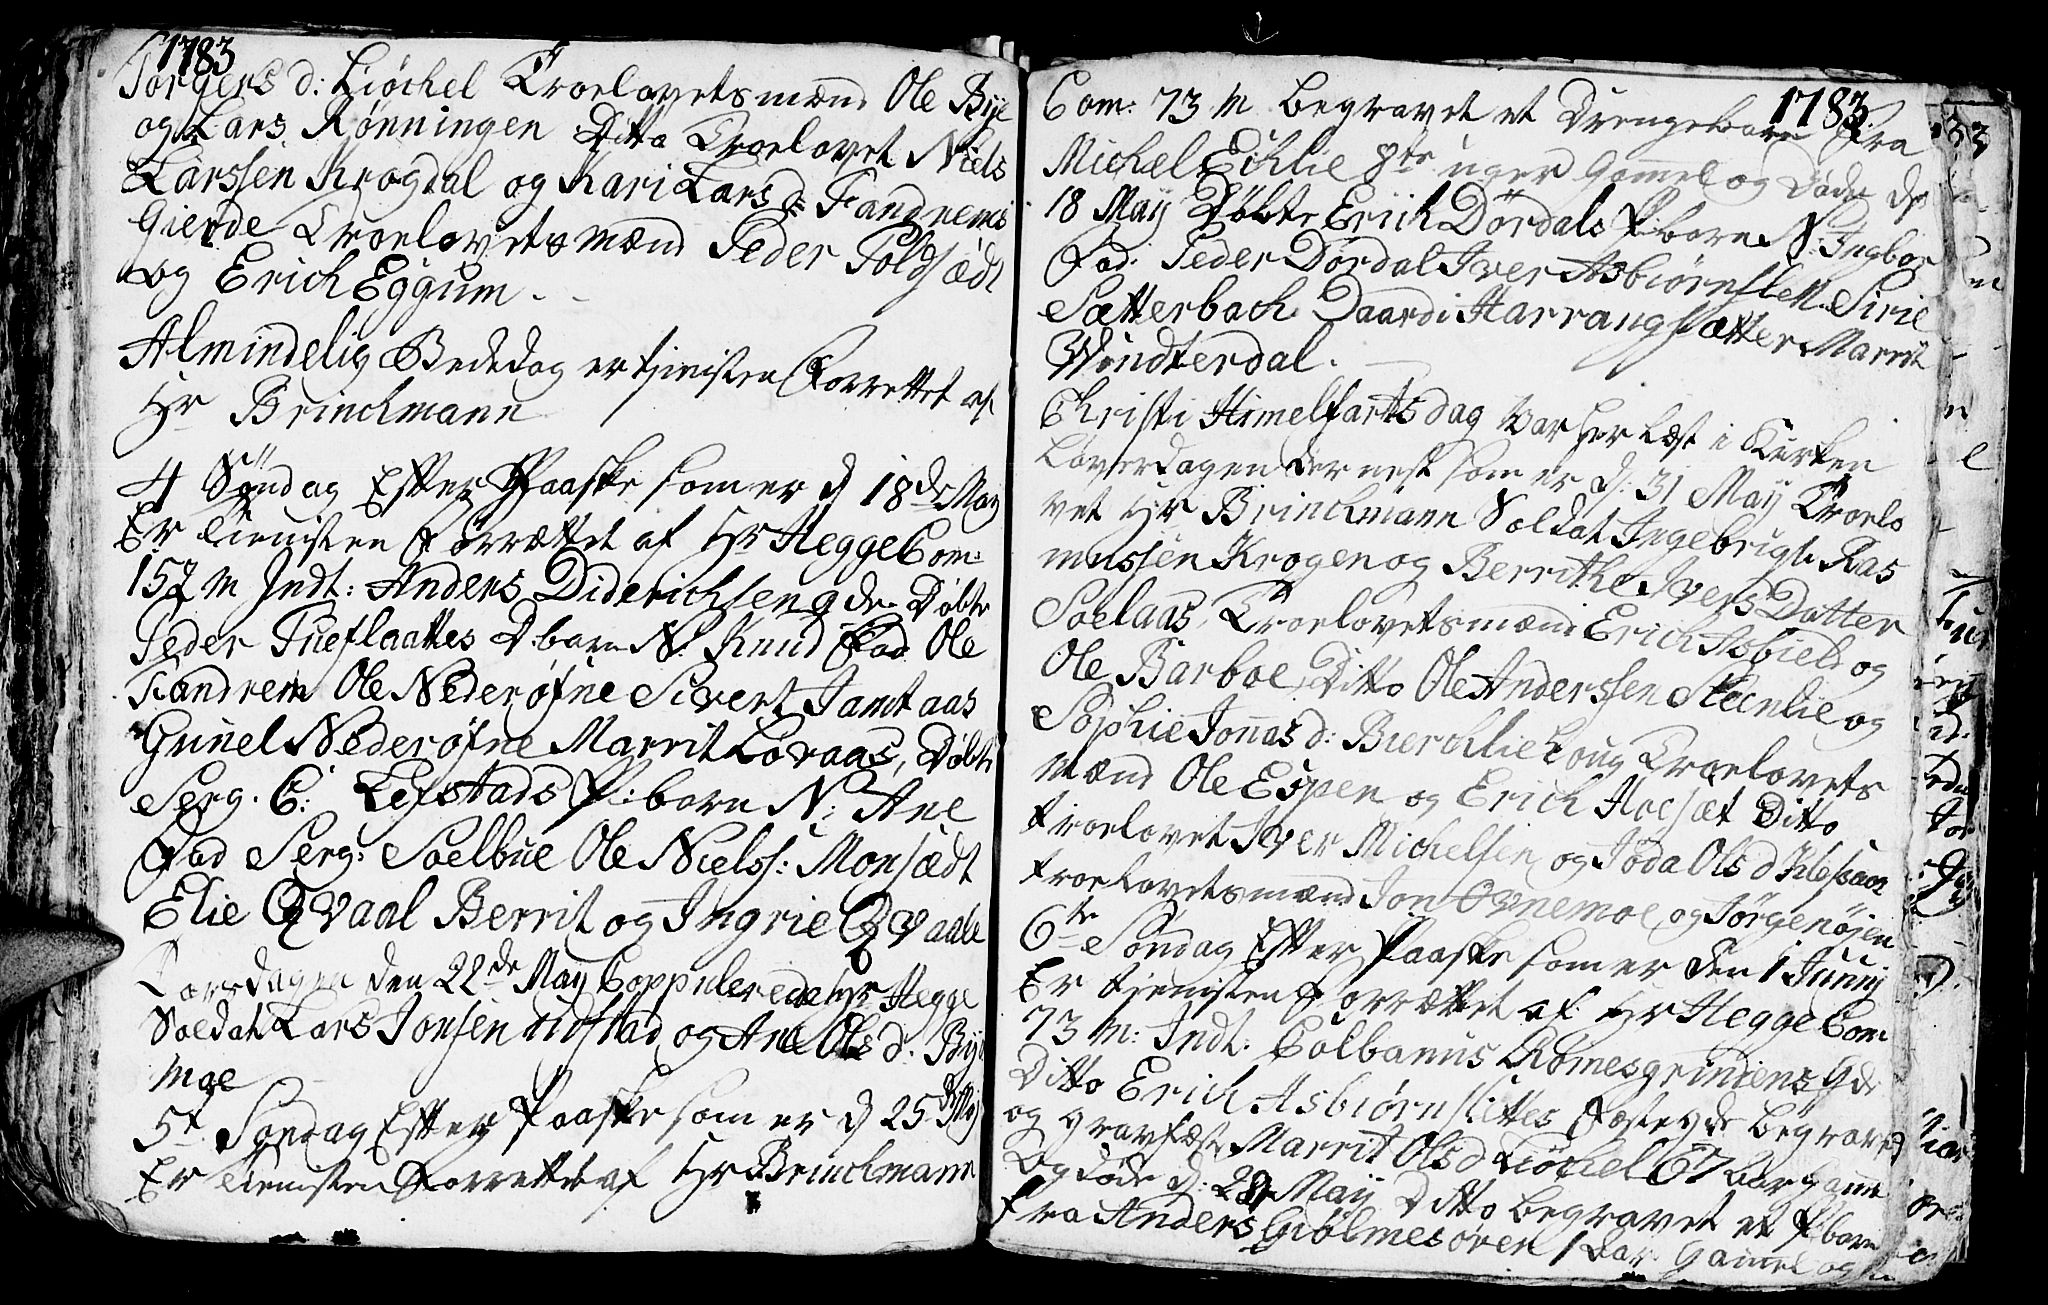 1783
Torgers d: Liøckel Troelovetsmænd Ole Bye
og Lars Rønningen Ditto Troelovet Niels
Larssen Krogdal og Kari Lars d: Fandrems
Gierde Troelovetsmænd Peder Poldsædt
og Erich Eggum.
Almindelig Bededag er tjenisten Forrettet af
Hr Brinchmann
4 Søndag Efter Paaske som er d 18de May
Er tienisten Forrættet af Hr Hegge Com:
152 m Indt: Anders Diderichsen gde. Døbte
Peder Tueflaattes D. barn N: Knud Fad Ole
Fandrem Ole Nederøfne Sivert Jamtaas
Gunel Nederøfne Marrit Lovaas, Døbt
Serg. C: Lefstads P: barn N: Ane
Fad Serg: Soelbue Ole Nielss: Monsædt
Elie Qvaal Berrit og Ingrie Qvaale
Torsdagen den 22de May Coppulerede Hr Hegge
Soldat Lars Jonsen Udstad og Ane Ols d. Bye
moe
5t Søndag Efter Paaske som er d 25de May
Er tienisten Forrettet af Hr Brinchmann
1783
Com: 73 m begravet et Drengebarn Fra
Michel Echlie 8te uger Gammel og Døde d
18 May Døbte Erich Dørdals P. barn N: Ingbor
Fad. Peder Dørdal Iver Asbiørnslett Sirie
Sætterbach Daardi Harrangsætter Marrit
Windterdal.
Christi Himelfarts dag var her læst i Kirken
Løverdagen der nest som er d: 31 May Troelo
vet Hr Brinchmann Soldat Ingebrigt Ras
mussen Krogen og Berrithe Ivers Datter
Soelaas, Troelovetsmænd Erich Asbield og
Ole Barboe, Ditto Ole Anderssen Steenlie og
Sophie Jonas d: Bierchlie Troelovets
mænd Ole Espen og Erich Hoesæt Ditto
troelovet Iver Michelsen og Ols d
troelovetsmænd Jon Ovnemoe og Jørgenøjen
6te Søndag Efter Paaske som er den 1 Junij
Er tjenisten Forrættet af Hr Hegge Com
73 m: Indt: Colbanus Rømesgrindens Gde
Ditto Erich Asbiørnslettes Fæste gde begravet
og gravfæst Marrit Ols d Liøckel 67 aar Gam
og døde d: May Ditto begravet et P barn
fra Anders Giølmesøren 1 aar Gamel og